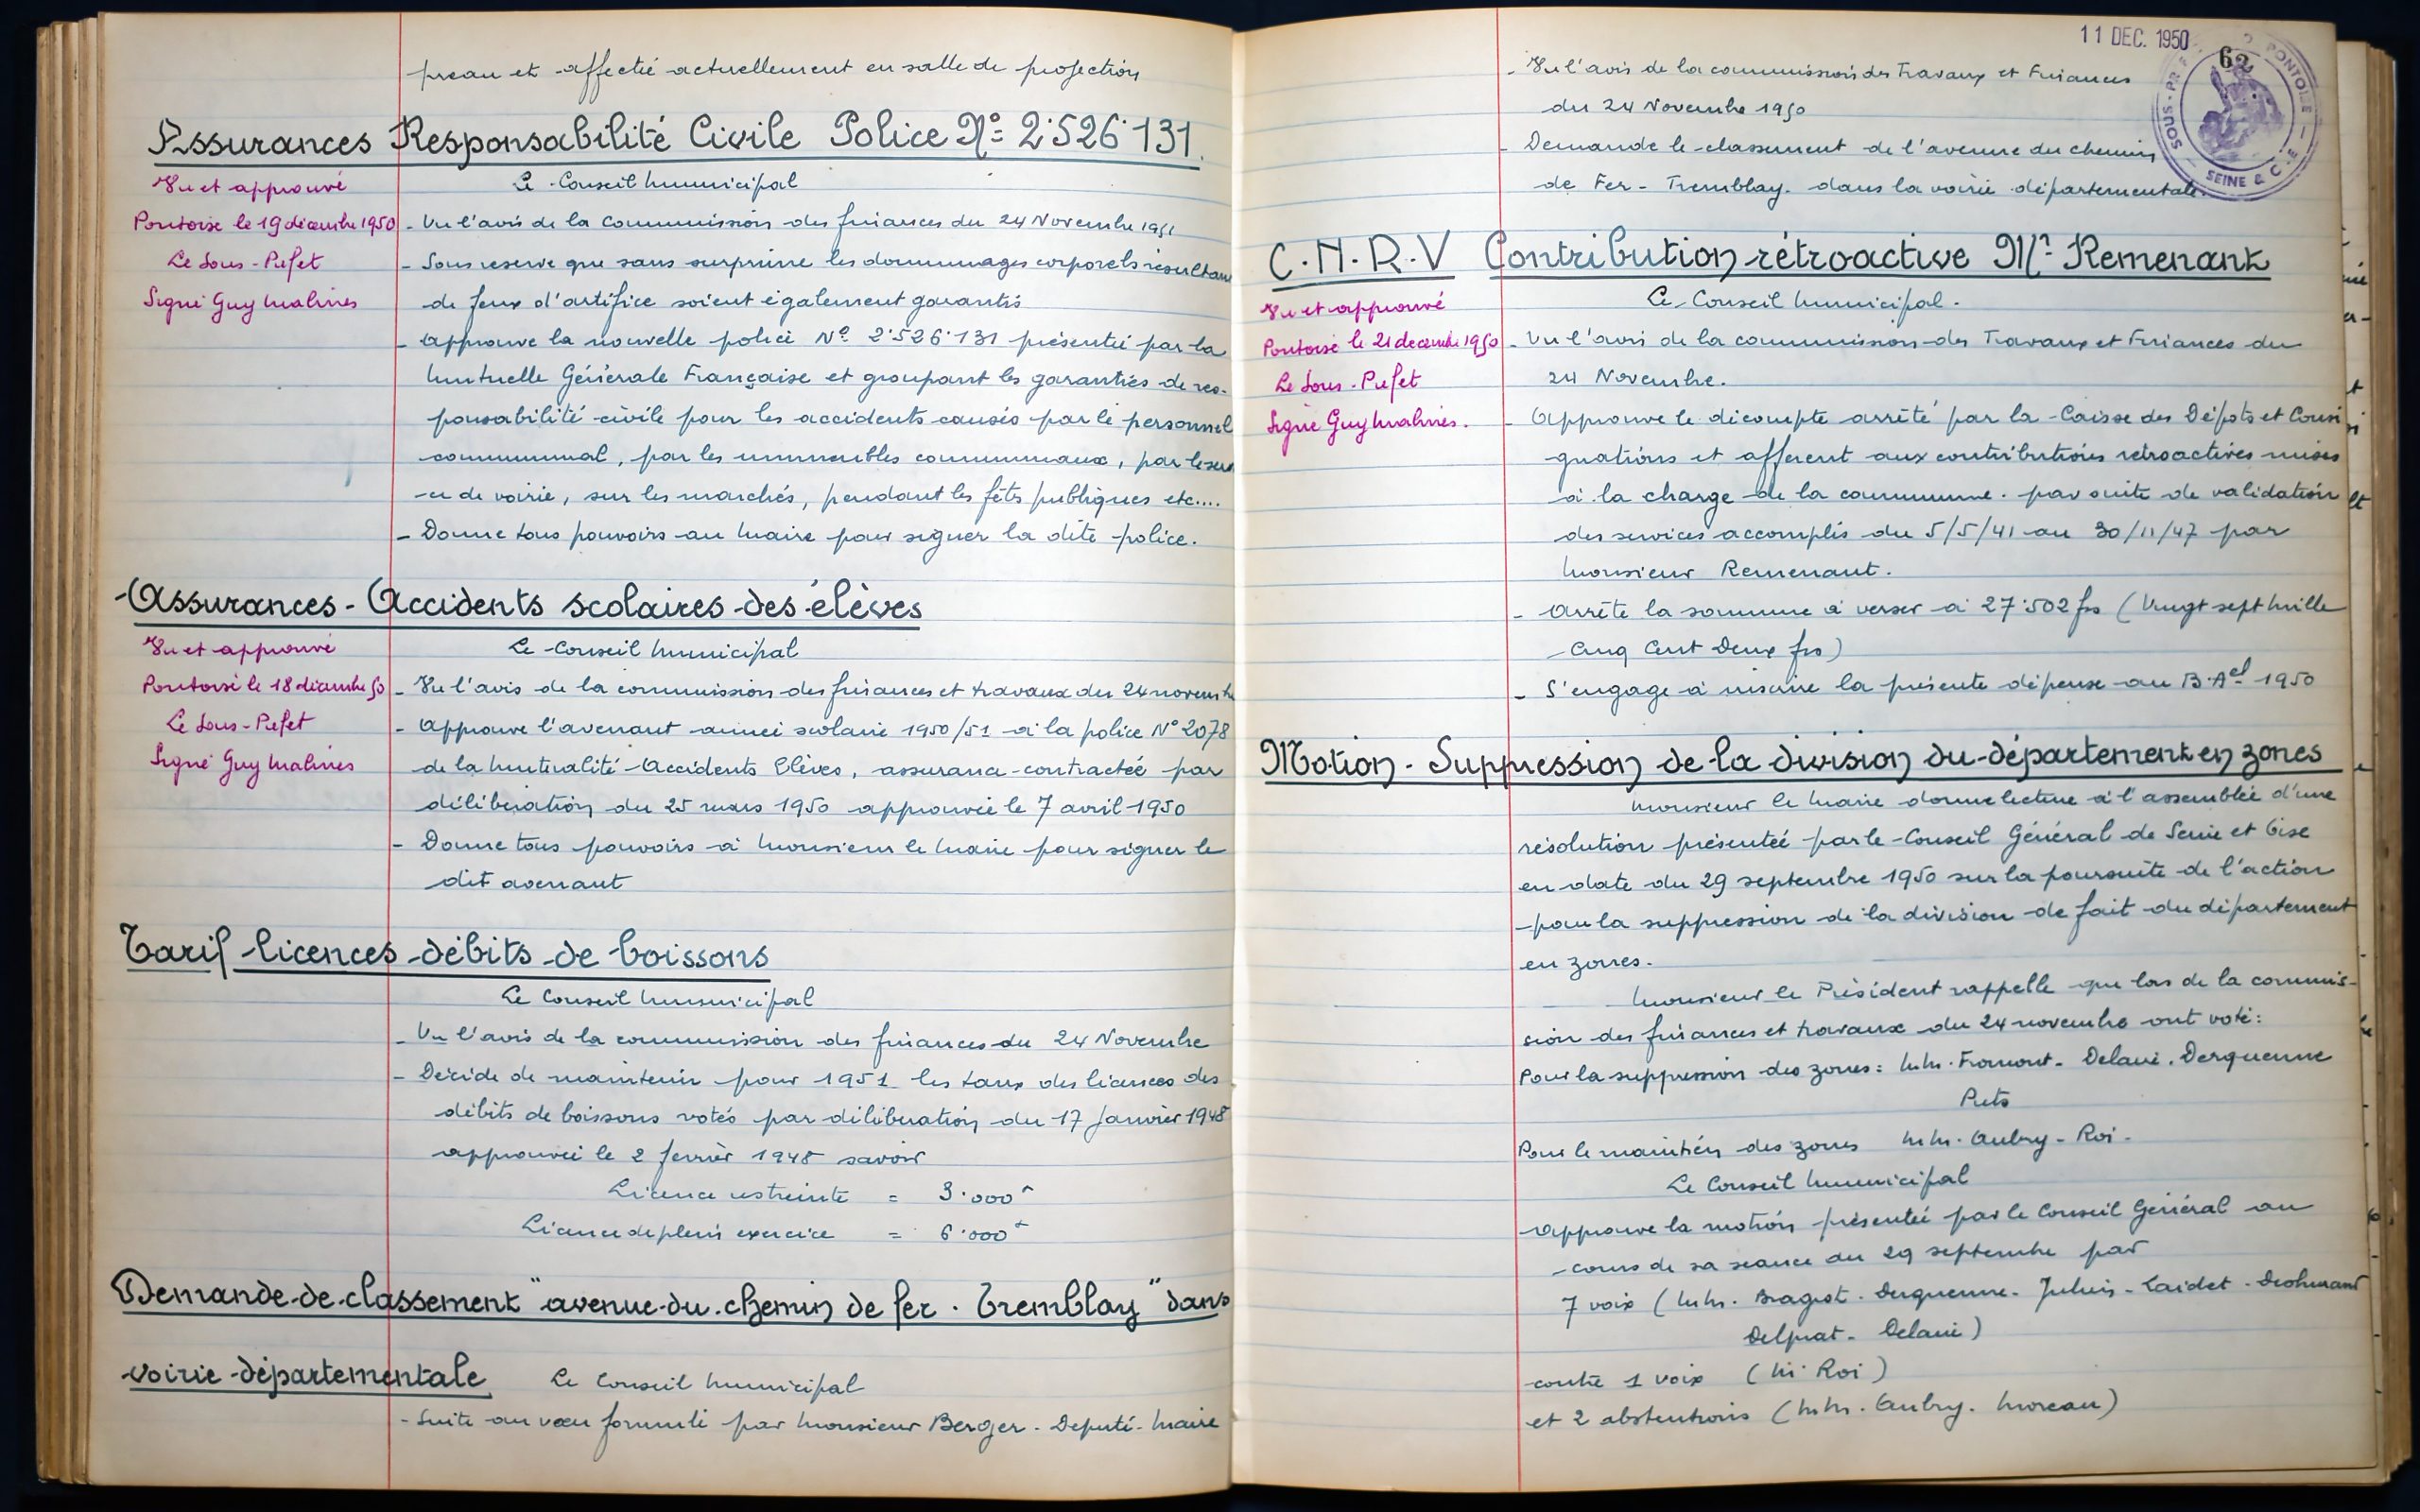 préau et affectée actuellement en salle de projection
Assurances Responsabilité Civile Police No 2.526.131.
Vu et approuvé
Pontoise le 19 décembre 1950
Le Sous-Préfet
Signé Guy Malines
Le Conseil Municipal
- Vu l'avis de la Commission des finances du 24 Novembre 1951
- Sous réserve que sans surprime les dommages corporels résultan
de feux d'artifice soient également garantis
- Approuve la nouvelle police No 2.526.131 présentée par la
Mutuelle Générale Française et groupant les garanties de res-
ponsabilité civile pour les accidents causés par le personnel
communal, par les immeubles communaux, par le
ce de voirie, sur les marchés, pendant les fêtes publiques etc....
- Donne tous pouvoirs au Maire pour signer la dite police.
Assurances - Accidents scolaires des élèves
Vu et approuvé
Pontoise le 18 décembre 50
Le Sous-Préfet
Signé Guy Malines
Le Conseil Municipal
- Vu l'avis de la commission des finances et travaux du 24 novembre
- Approuve l'avenant année scolaire 1950/51 à la police No 2078
de la Mutualité-Accidents Elèves, assurance contractée par
délibération du 25 mars 1950 approuvée le 7 avril 1950
- Donne tous pouvoirs à Monsieur le Maire pour signer le
dit avenant
Tarif licences débits de boissons
Le Conseil Municipal
- Vu l'avis de la commission des finances du 24 Novembre
- Décide de maintenir pour 1951 les taux des licences des
débits de boissons votés par délibération du 17 Janvier 1948
approuvée le 2 février 1948 savoir
Licence restreinte = 3.000 f
Licence de plein exercice = 6.000 f
Demande de classement "avenue du chemin de fer. Tremblay" dans
voirie départementale
Le Conseil Municipal
- Suite au vœu formulé par Monsieur Berger. Député-Maire
11 DEC. 1950
62
SOUS-PRÉF PONTOISE
SEINE &
- Vu l'avis de la commission des Travaux et Finances
du 24 Novembre 1950
- Demande le classement de l'avenue du chemin
de Fer - Tremblay. dans la voirie départementale.
C.N.R.V Contribution rétroactive Mr Remenant
Vu et approuvé
Pontoise le 21 decembre 1950
Le Sous-Préfet
Signé Guy Malines.
Le Conseil Municipal.
- Vu l'avis de la commission des Travaux et Finances du
24 Novembre.
- Approuve le décompte arrêté par la Caisse des Dépots et Consi
gnations et afférent aux contributions rétroactives mises
à la charge de la commune. par suite de validation
des services accomplis du 5/5/41 au 30/11/47 par
Monsieur Remenant.
- Arrête la somme à verser à 27.502 frs (Vingt sept Mille
Cinq Cent Deux frs)
- S'engage à inscrire la présente dépense au B.Ael 1950
Motion - Suppression de la division du département en zones
Monsieur le Maire donne lecture à l'assemblée d'une
résolution présentée par le Conseil Général de Seine et Oise
en date du 29 septembre 1950 sur la poursuite de l'action
pour la suppression de la division de fait du département
en zones.
Monsieur le Président rappelle que lors de la commis-
sion des finances et travaux du 24 novembre ont voté:
Pour la suppression des zones: MM. Fromont - Delavi. Derquenne
Puts
Pour le maintien des zones MM. Aubry - Roi.
Le Conseil Municipal
Approuve la motion présentée par le Conseil Général au
cours de sa séance du 29 septembre par
7 voix (MM. Bragot. Derquenne - Julien - Laidet -
Delprat - Delavi)
contre 1 voix (M. Roi)
et 2 abstentions (MM. Aubry. Moreau)